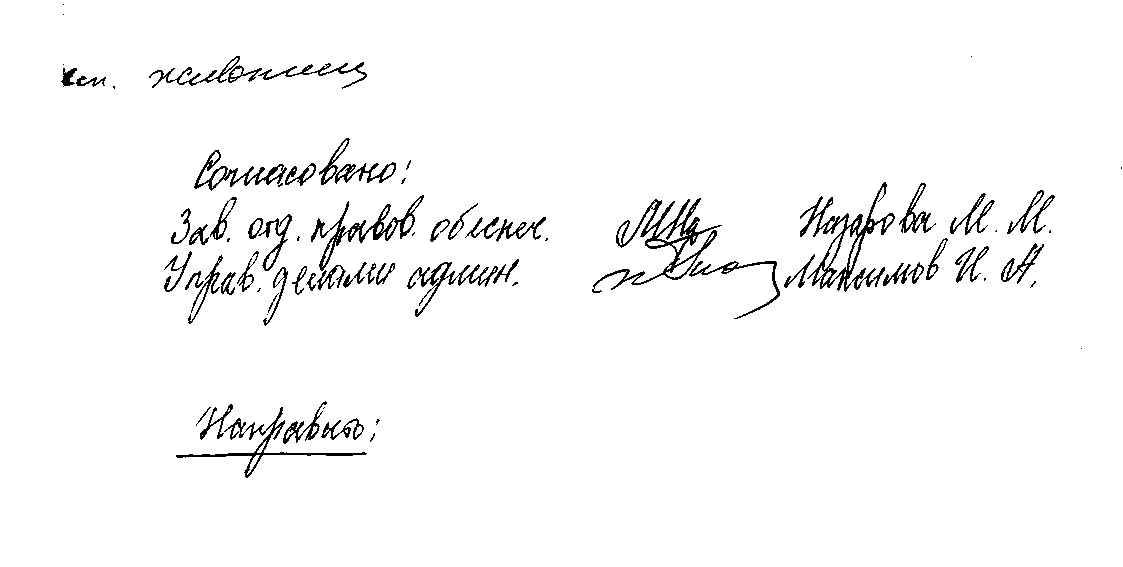 Согласовано:
Зав. отд. правов. обеспеч. Назарова М. М.
Управ. делами админ. Максимов И. А.
Направить: